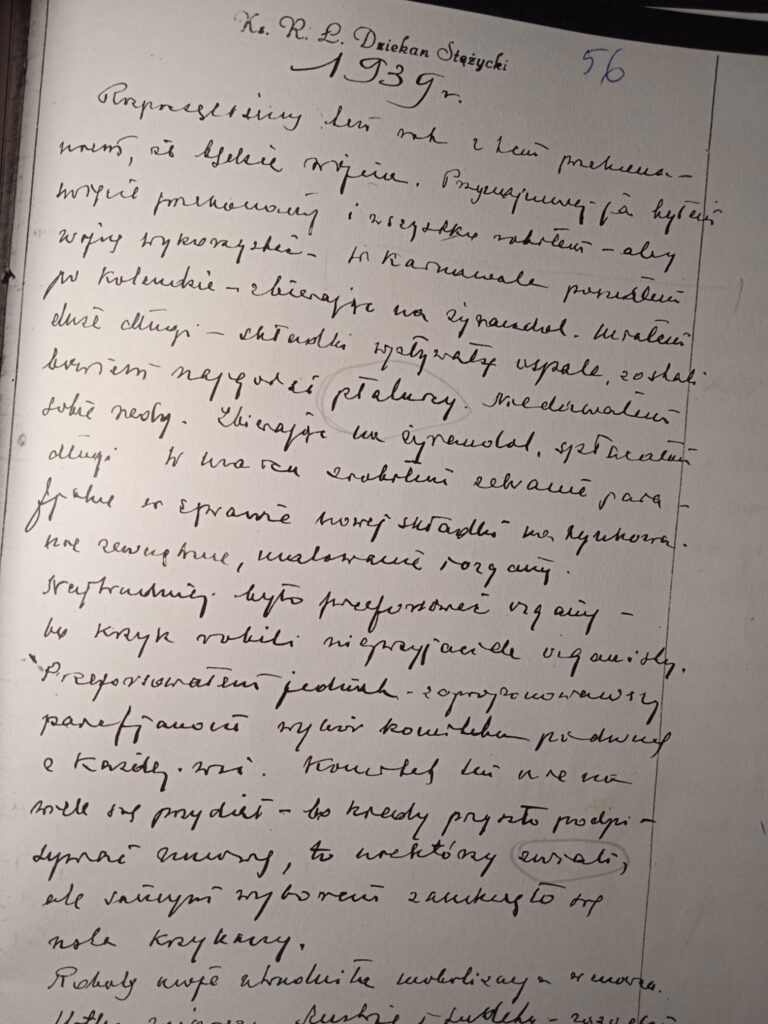 Ks. R. Ł. Dziekan Stężycki
56
1939 r.
Rozpoczęliśmy ten rok z tem przekona-
niem, że będzie wojna. Przynajmniej ja byłem
święcie przekonany i wszystko robiłem - aby
wojnę wykorzystać - w karnawale poszedłem
po kolendzie - zbierając na żyrandol. Miałem
duże długi - składki wpływały ospale, zostali
bowiem najgorsi płatnicy. Nie dawałem
sobie rady. Zbierając na żyrandol, spłacałem
długi W marcu zrobiłem zebranie para-
fjalne w sprawie nowej składki na tynkowa-
nie zewnętrzne, malowanie i organy.
Najtrudniej było przeforsować organy -
bo krzyk robili nieprzyjaciele organisty.
Przeforsowałem jednak - zaproponowawszy
parafjanom wybór komitetu po dwuch
z każdej wsi. Komitet ten nie na
wiele się przydał - bo kiedy przyszło podpi-
sywać umowę, to niektórzy zwiali,
ale samym wyborem zamknęło się
usta krzykaczy.
Roboty moje utrudniła mobilizacja w marcu.